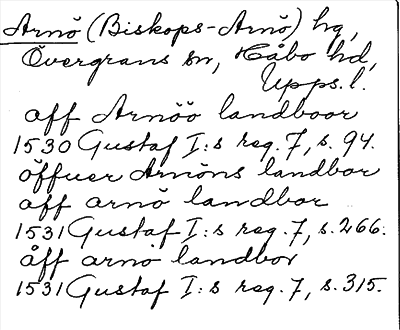 Arnö (Biskops-Arnö) hg,
Övergrans sn, Håbo hd,
Upps.l.
aff Arnöö landboor
1530 Gustaf I:s reg. 7, s. 94.
öffuer Arnöns landbor
aff arnö landbor
1531 Gustaf I:s reg. 7, s. 266.
åff arnö landbor
1531 Gustaf I:s reg. 7, s. 315.